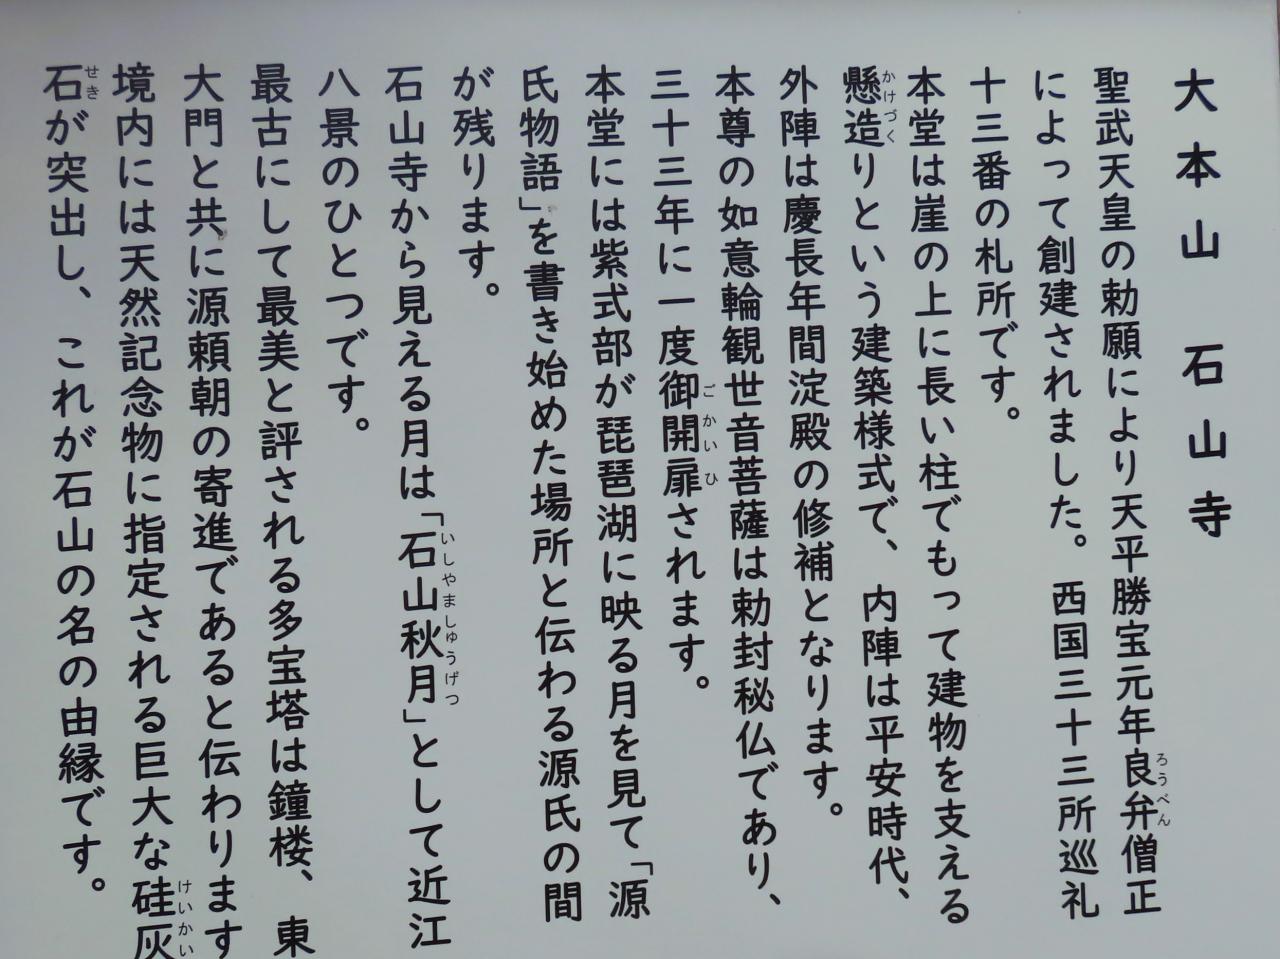 大本山 石山寺
聖武天皇の勅願により天平勝宝元年良弁僧正
によって創建されました。西国三十三所巡礼
十三番の札所です。
本堂は崖の上に長い柱でもって建物を支える
懸造りという建築様式で、内陣は平安時代、
外陣は慶長年間淀殿の修補となります。
本尊の如意輪観世音菩薩は勅封秘仏であり、
三十三年に一度御開扉されます。
本堂には紫式部が琵琶湖に映る月を見て「源
氏物語」を書き始めた場所と伝わる源氏の間
が残ります。
石山寺から見える月は「石山秋月」として近江
八景のひとつです。
最古にして最美と評される多宝塔は鐘楼、東
大門と共に源頼朝の寄進であると伝わります
境内には天然記念物に指定される巨大な硅灰
石が突出し、これが石山の名の由縁です。